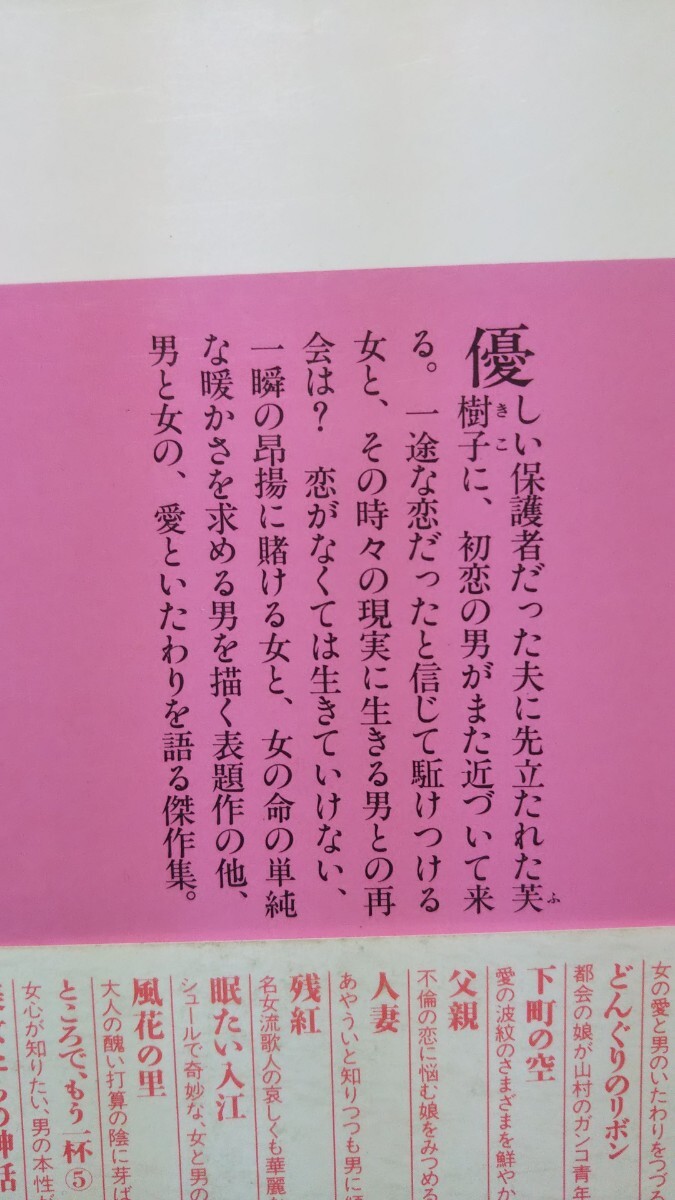 優しい保護者だった夫に先立たれた芙
樹子に、初恋の男がまた近づいて来
る。一途な恋だったと信じて駈けつける
女と、その時々の現実に生きる男との再
会は？　恋がなくては生きていけない、
一瞬の昂揚に賭ける女と、女の命の単純
な暖かさを求める男を描く表題作の他、
男と女の、愛といたわりを語る傑作集。
ふ
きこ
女の愛と男のいたわりをつづる
どんぐりのリボン
都会の娘が山村のガンコ青年
下町の空
愛の波紋のさまざまを鮮やか
父親
不倫の恋に悩む娘をみつめる
人妻
あやういと知りつつも男に
残紅
名女流歌人の哀しくも華麗
眠たい入江
シュールで奇妙な、女と男の
風花の里
大人の醜い打算の陰に芽ば
ところで、もう一杯⑤
女心が知りたい、男の本性
の神話